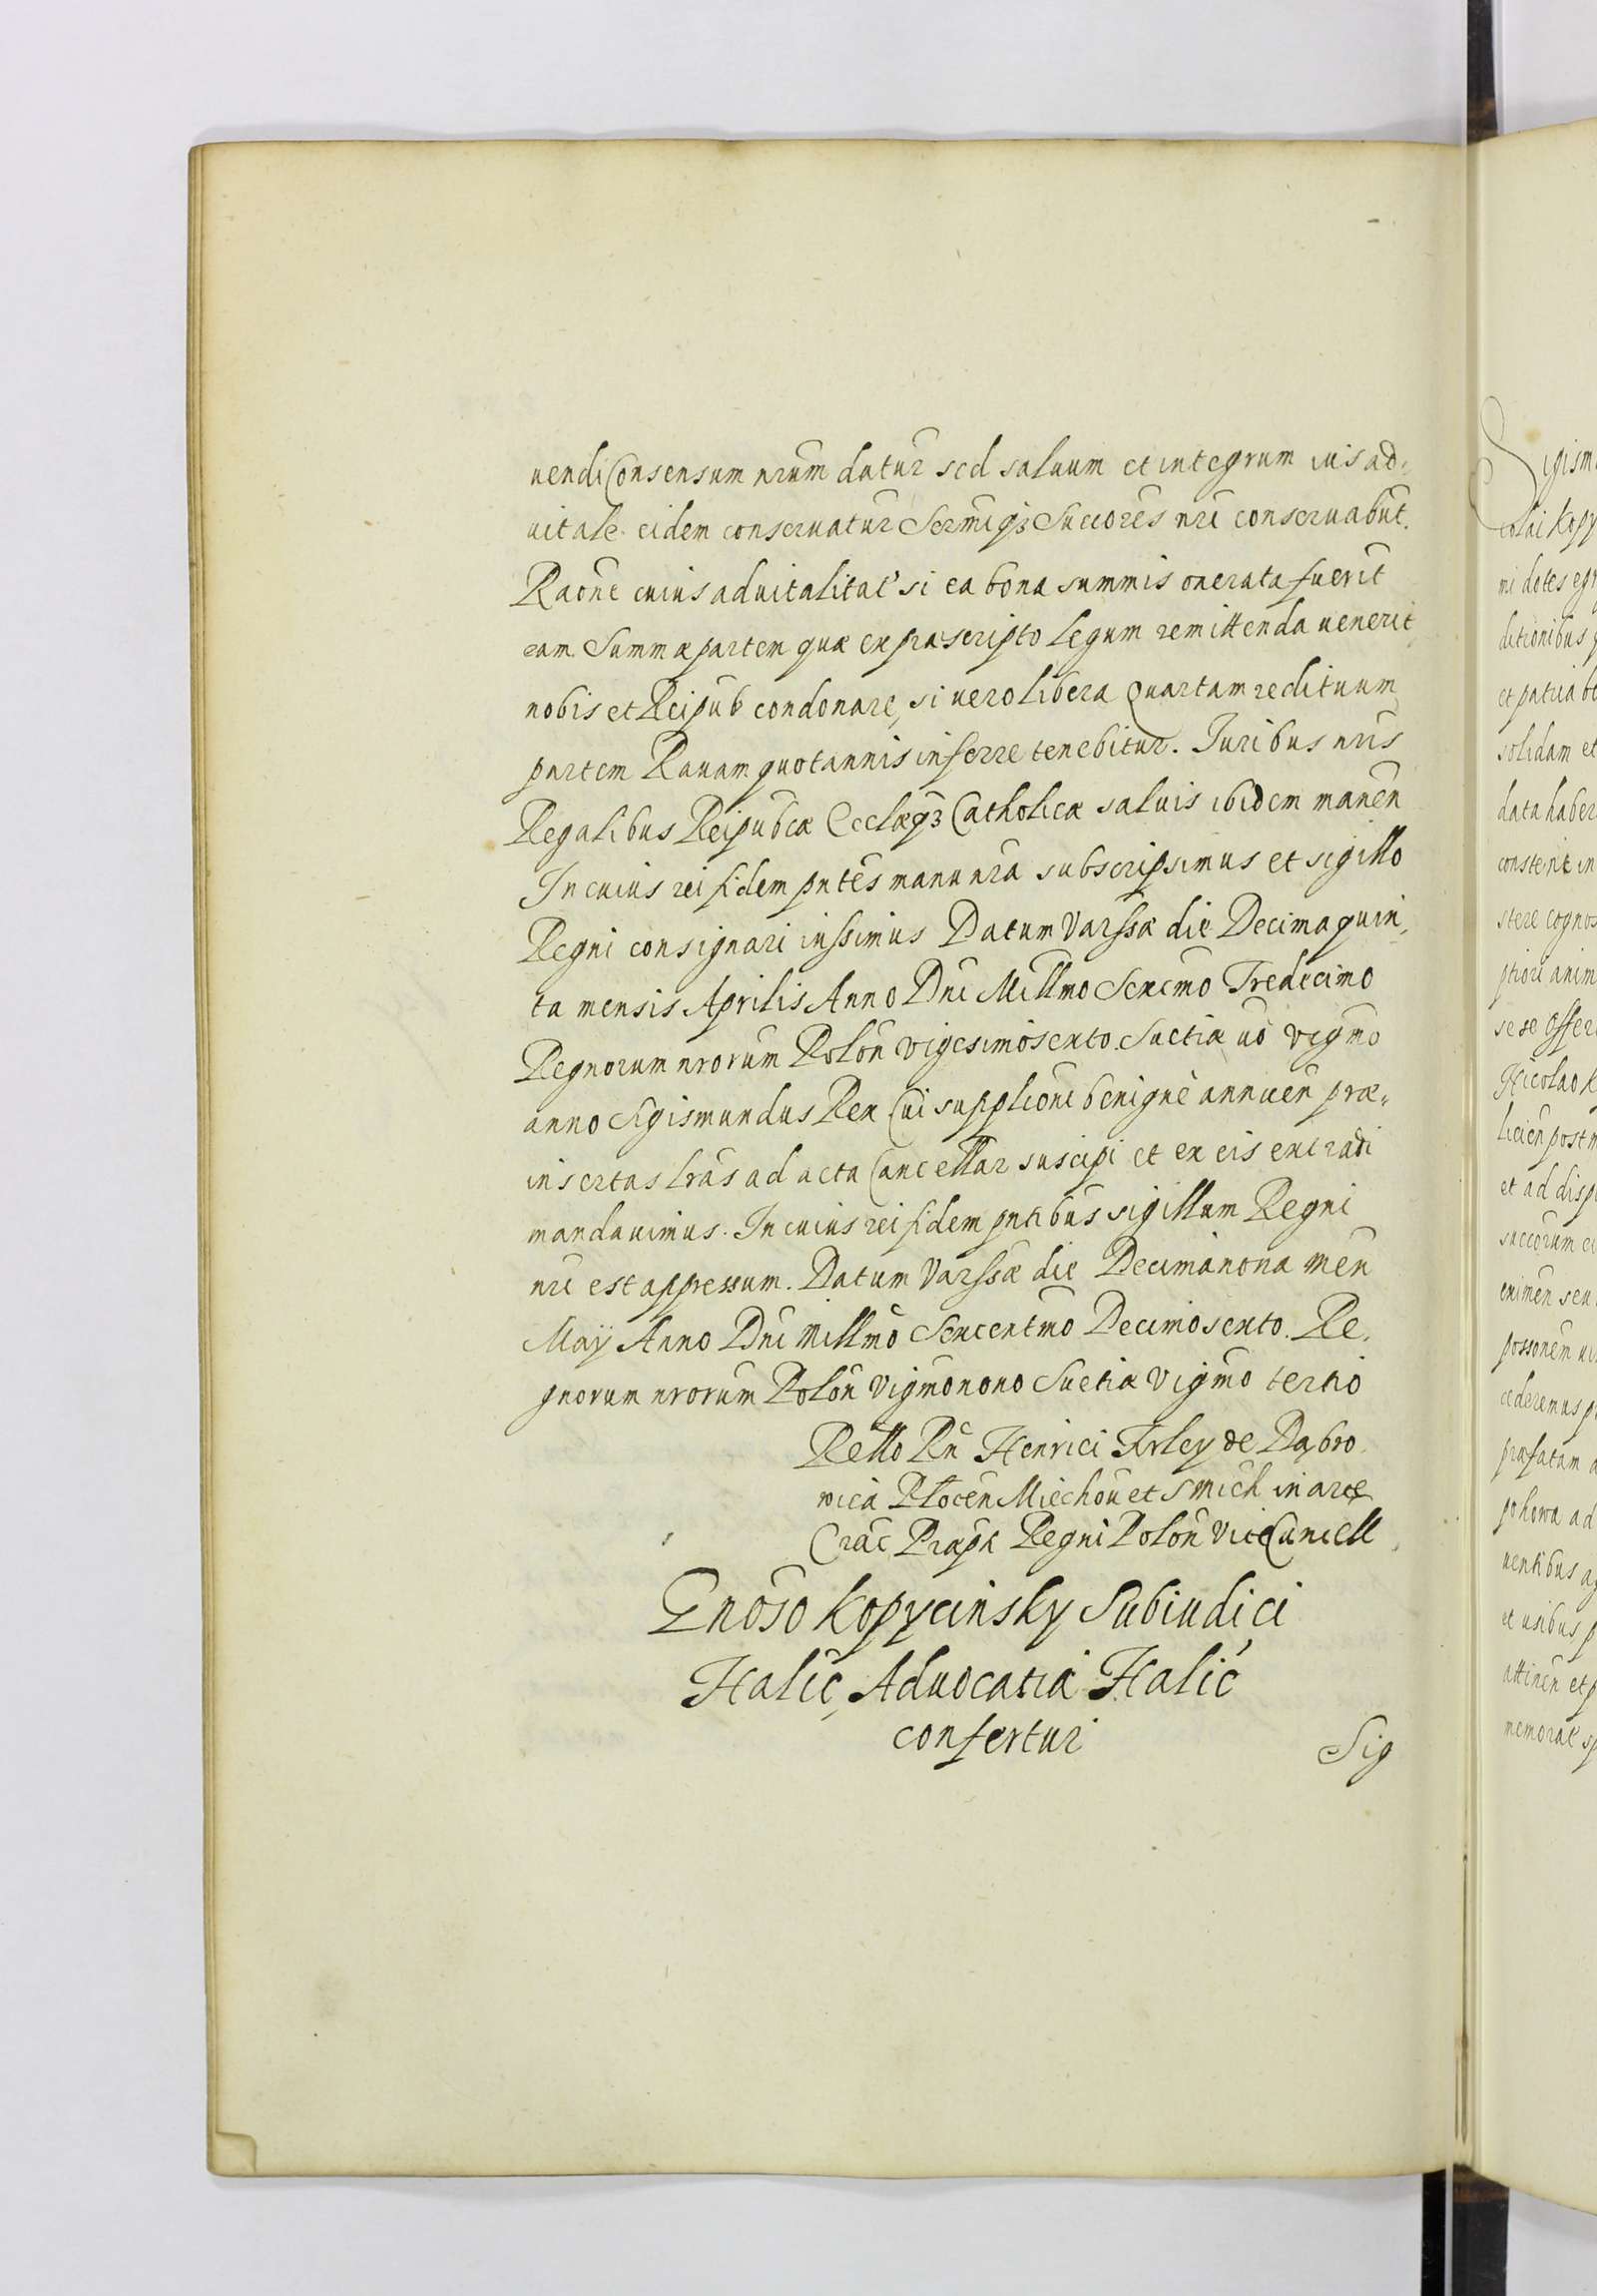 uendi Consensum nrum datur sed saluum et integrum ius ad,
uitale eidem conseruatur Sermiqz Succores nri conseruabut.
Raone cuius aduitalitat si ea bona summis onerata fuerit
eam Summæ partem quæ ex præscripto legum remittenda uenerit
nobis et Reipub condonare, si uero libera Quartam redituum
partem Rauam quotannis inferre tenebitur. Iuribus nris
Regalibus Reipubcæ Ecclæqz Catholicæ saluis ibidem manen
In cuius rei fidem pntes manu nra subscripsimus et sigillo
Regni consignari iussimus Datum Varssæ die Decima quin,
ta mensis Aprilis Anno Dni Millmo Sexcmo Tredecimo
Regnorum nrorum Polon vigesimosexto. Suetiæ uo vigmo
anno Sigismundus Rex Cui suppliconi benignè annuen præ,,
insertas lras ad acta Cancellar suscipi et ex eis extradi
mandauimus. In cuius rei fidem pntibus sigillum Regni
nri est appressum. Datum Varssæ die Decimanona men
Maÿ Anno Dni Millmo Sexcentmo Decimosexto. Re,
gnorum nrorum Polon vigmonono Suetiæ Vigmo tertio
Rello Rn Henrici Firley de Dąbro
wica Płocen Miechou et S Mich in arce
Crac Præpti Regni Polon ViceCancell
Gnoso Kopycinsky Subiudici
Halic, Aduocatia Halic
confertur
Sig
Sigism
colai Kopy
mi dotes egr
ditionibus
et patria
solidam et
data haber
constent in
stere cognos
ptiori anim
se se offer
Nicolao K
licien post
et ad disp
succorum
eximen seu
possonem
cederemus
præfatam
uentibus
et usibus
attinen et